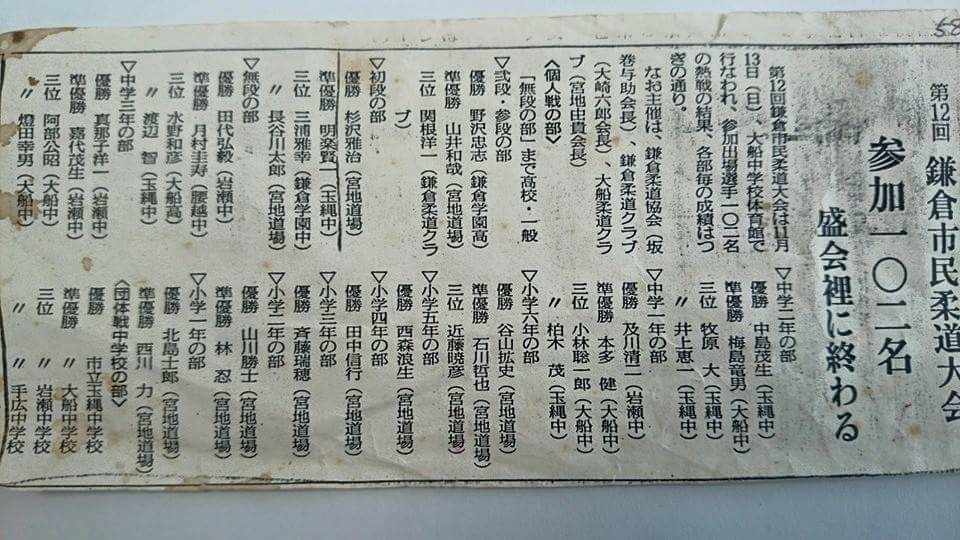 58
第12回 鎌倉市民柔道大会
参加一〇二名
盛会裡に終わる
第12回鎌倉市民柔道大会は11月
13日（日）、大船中学校体育館で
行なわれ、参加出場選手一〇二名
の熱戦の結果、各部毎の成績はつ
ぎの通り。
なお主催は、鎌倉柔道協会（坂
巻与助会長）、鎌倉柔道クラブ
（大崎六郎会長）、大船柔道クラ
ブ（宮地由貴会長）
〈個人戦の部〉
「無段の部」まで高校・一般
▽弐段・参段の部
優勝 野沢忠志（鎌倉学園高）
準優勝 山井和哉（宮地道場）
三位 関根洋一（鎌倉柔道クラ
ブ）
▽初段の部
優勝 杉沢雅治（宮地道場）
準優勝 明楽賢一（玉縄中）
三位 三浦雅幸（鎌倉学園中）
〃 長谷川太郎（宮地道場）
▽無段の部
優勝 田代弘毅（岩瀬中）
準優勝 月村圭寿（腰越中）
三位 水野和彦（大船高）
〃 渡辺 智（玉縄中）
▽中学三年の部
優勝 真那子洋一（岩瀬中）
準優勝 嘉代茂生（岩瀬中）
三位 阿部公昭（大船中）
〃 燈田幸男（大船中）
▽中学二年の部
優勝 中島茂生（玉縄中）
準優勝 梅島竜男（大船中）
三位 牧原 大（玉縄中）
〃 井上恵一（玉縄中）
▽中学一年の部
優勝 及川清二（岩瀬中）
準優勝 本多 健（大船中）
三位 小林聡一郎（大船中）
〃 柏木 茂（玉縄中）
▽小学六年の部
優勝 谷山拡史（宮地道場）
準優勝 石川哲也（宮地道場）
三位 近藤暁彦（宮地道場）
▽小学五年の部
優勝 西森浪生（宮地道場）
▽小学四年の部
優勝 田中信行（宮地道場）
▽小学三年の部
優勝 斉藤瑞穂（宮地道場）
▽小学二年の部
優勝 山川勝士（宮地道場）
準優勝 林 忍（宮地道場）
▽小学一年の部
優勝 北島士郎（宮地道場）
準優勝 西川 力（宮地道場）
〈団体戦中学校の部〉
優勝 市立玉縄中学校
準優勝 〃 大船中学校
三位 〃 岩瀬中学校
〃 〃 手広中学校